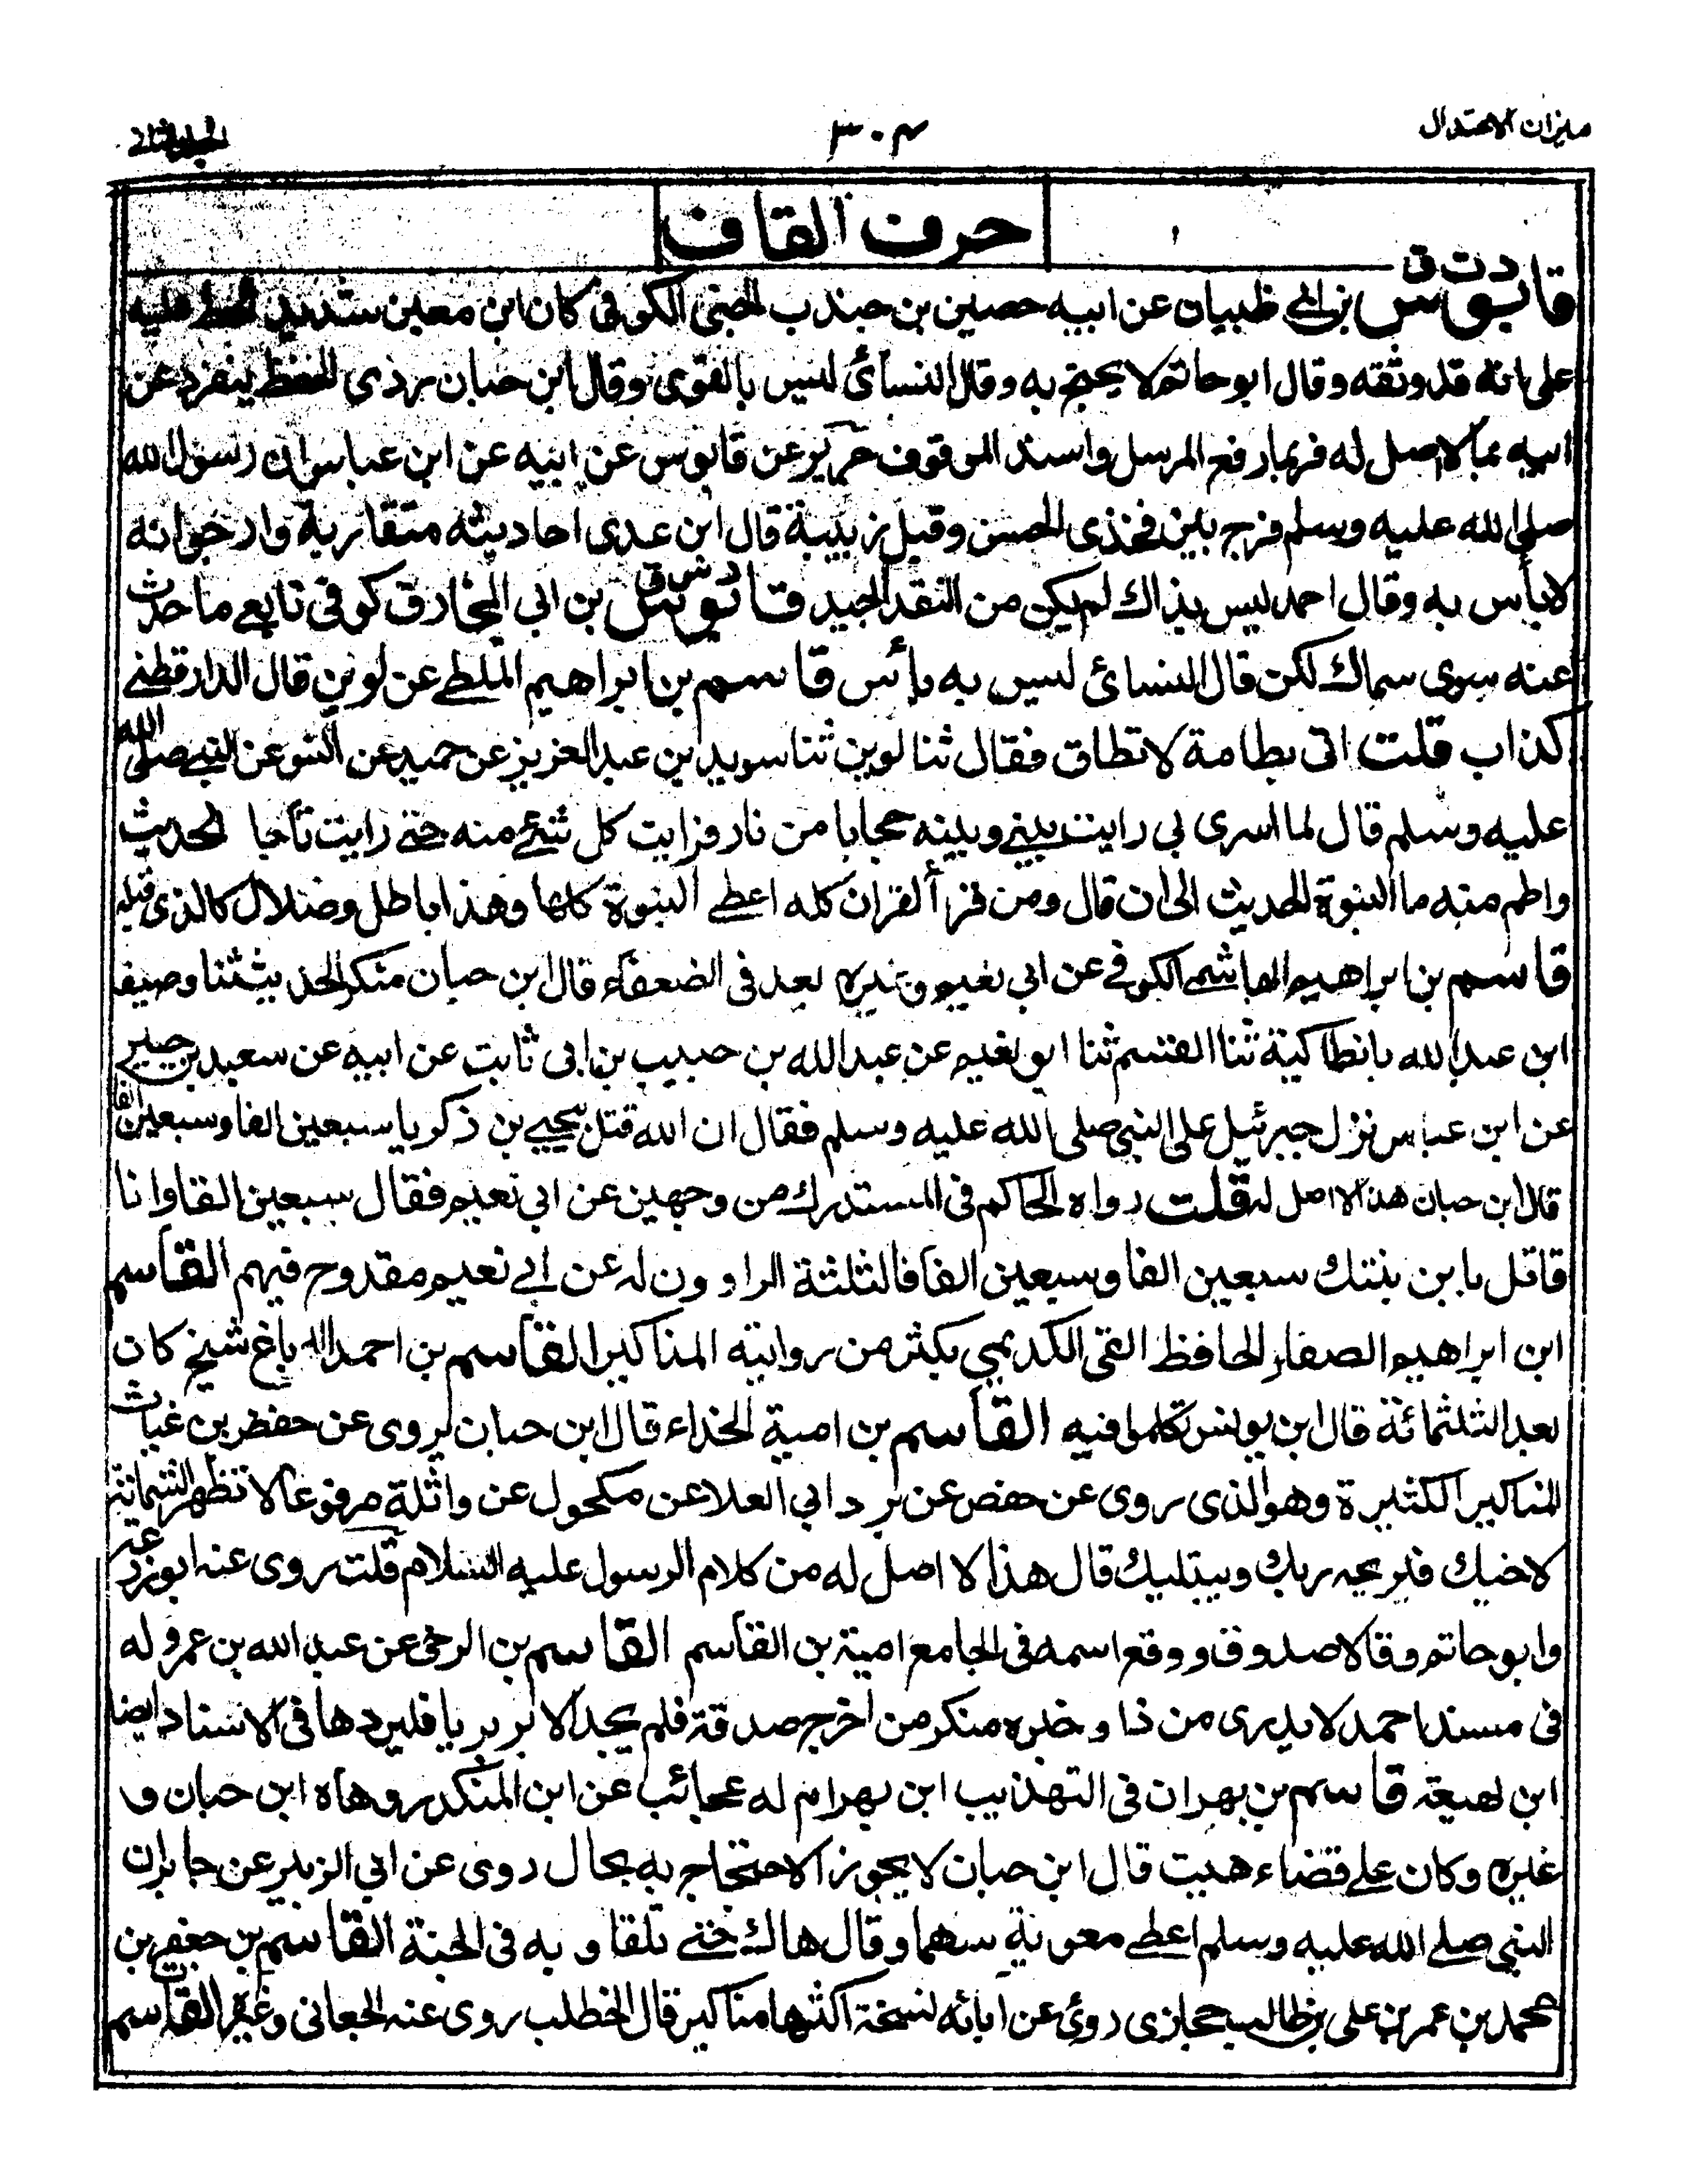 ميزان الاعتدال
٣٠٤
الجلد الثاني
حرف القاف
د ت ق
قابوس بن ابي ظبيان عن ابيه حصين بن جندب الجنبي الكوفي كان ابن معين شديد الحط عليه
على انه قد وثقه وقال ابو حاتم لا يحتج به وقال النسائي ليس بالقوي وقال ابن حبان ردي الحفظ ينفرد عن
ابيه بما لا اصل له فربما رفع المرسل واسند الموقوف جرير عن قابوس عن ابيه عن ابن عباس ان رسول الله
صلى الله عليه وسلم فرج بين فخذي الحسن وقبل زبيبة قال ابن عدي احاديثه متقاربة وارجو انه
لا بأس به وقال احمد ليس بذاك لم يكن من النقد الجيد قابوس د س ق بن ابي المخارق كوفي تابعي ما حدث
عنه سوى سماك لكن قال النسائي ليس به بأس قاسم بن ابراهيم الملطي عن لوين قال الدارقطني
كذاب قلت اتى بطامة لا تطاق فقال ثنا لوين ثنا سويد بن عبد العزيز عن حميد عن انس عن النبي صلى الله
عليه وسلم قال لما اسرى بي رايت بيني وبينه حجابا من نار فرايت كل شئ منه حتى رايت تاجا الحديث
واطم منه ما النبوة الحديث الى ان قال ومن قرأ القران كله اعطى النبوة كلها وهذا باطل وضلال كالذي قبله
قاسم بن ابراهيم الهاشمي الكوفي عن ابي نعيم وغيره يعد في الضعفاء قال ابن حبان منكر الحديث ثنا وصيف
ابن عبد الله بانطاكية ثنا القسم ثنا ابو نعيم عن عبد الله بن حبيب بن ابي ثابت عن ابيه عن سعيد بن جبير
عن ابن عباس نزل جبرئيل على النبي صلى الله عليه وسلم فقال ان الله قتل بيحيى بن ذكريا سبعين الفا وسبعين الفا
قال ابن حبان هذا لا اصل له قلت رواه الحاكم في المستدرك من وجهين عن ابي نعيم فقال سبعين الفا وانا
قاتل بابن بنتك سبعين الفا وسبعين الفا فالثلثة الراوون له عن ابي نعيم مقدوح فيهم القاسم
ابن ابراهيم الصفار الحافظ القى الكديمي يكثر من روايته المناكير القاسم بن احمد الدباغ شيخ كان
بعد الثلثمائة قال ابن يونس تكلموا فيه القاسم بن امية الحذاء قال ابن حبان يروى عن حفص بن غياث
المناكير الكثيرة وهو الذي روى عن حفص عن برد ابي العلا عن مكحول عن واثلة مرفوعا لا تظهر الشماتة
لاخيك فيريحه ربك ويبتليك قال هذا لا اصل له من كلام الرسول عليه السلام قلت روى عنه ابو زرعة
وابو حاتم وقالا صدوق ووقع اسمه في الجامع امية بن القاسم القاسم بن الرخى عن عبد الله بن عمرو له
في مسند احمد لا يدرى من ذا وخبره منكر من اخرج صدقة فلم يجد الا بربريا فليردها في الاسناد ايضا
ابن لهيعة قاسم بن بهران في التهذيب ابن بهرام له عجائب عن ابن المنكدر وهاه ابن حبان و
غيره وكان على قضاء هيت قال ابن حبان لا يجوز الاحتجاج به بحال روى عن ابي الزبير عن جابر ان
النبي صلى الله عليه وسلم اعطى معوية سهما وقال هاك حتى تلقاوبه في الجنة القاسم بن جعفر بن
محمد بن عمر بن علي بن طالب حجازى روى عن آبائه نسخة اكثرها مناكير قال الخطلب روى عنه الجعابي وغيره القاسم